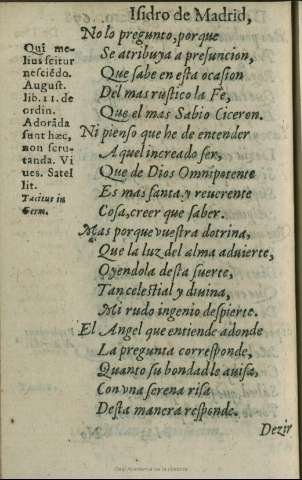 Isidro de Madrid,
No lo pregunto, porque
Se atribuya a presuncion,
Que sabe en esta ocasion
Del mas rustico la Fe,
Que el mas Sabio Ciceron.
Ni pienso que he de entender
Aquel increado ser,
Que de Dios Omnipotente
Es mas santa, y reuerente
Cosa, creer que saber.
Mas porque vuestra dotrina,
Que la luz del alma aduierte,
Oyendola desta suerte,
Tan celestial y diuina,
Mi rudo ingenio despierte.
El Angel que entiende adonde
La pregunta corresponde,
Quanto su bondad le auisa,
Con vna serena risa
Desta manera responde.
Dezir
Qui me-
lius scitur
nesciēdo.
August.
lib. 11. de
ordin.
Adorāda
sunt hæc,
non scru-
tanda. Vi
ues. Satel
lit.
Tacitus in
Germ.
Real Academia de la Historia